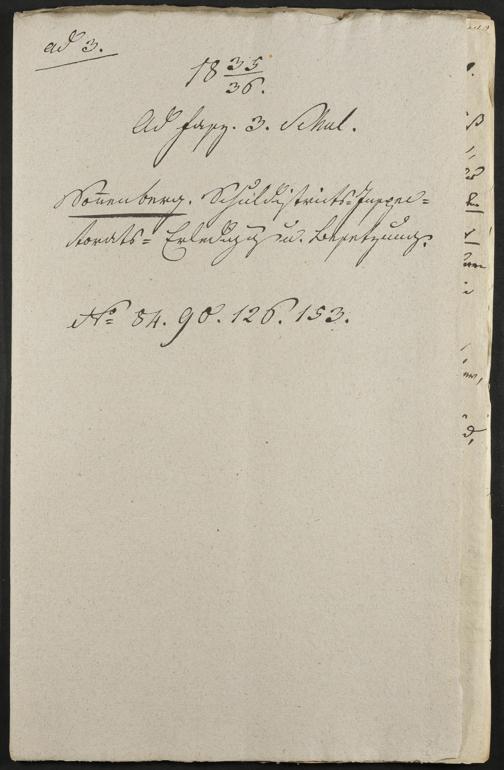 ad 3.
18 35/36.
Ad fasz. 3. Schul.
Sonnenberg. Schuldistricts-Inspec=
torats= Erledigg u. Besetzung.
No 84. 90. 126. 153.